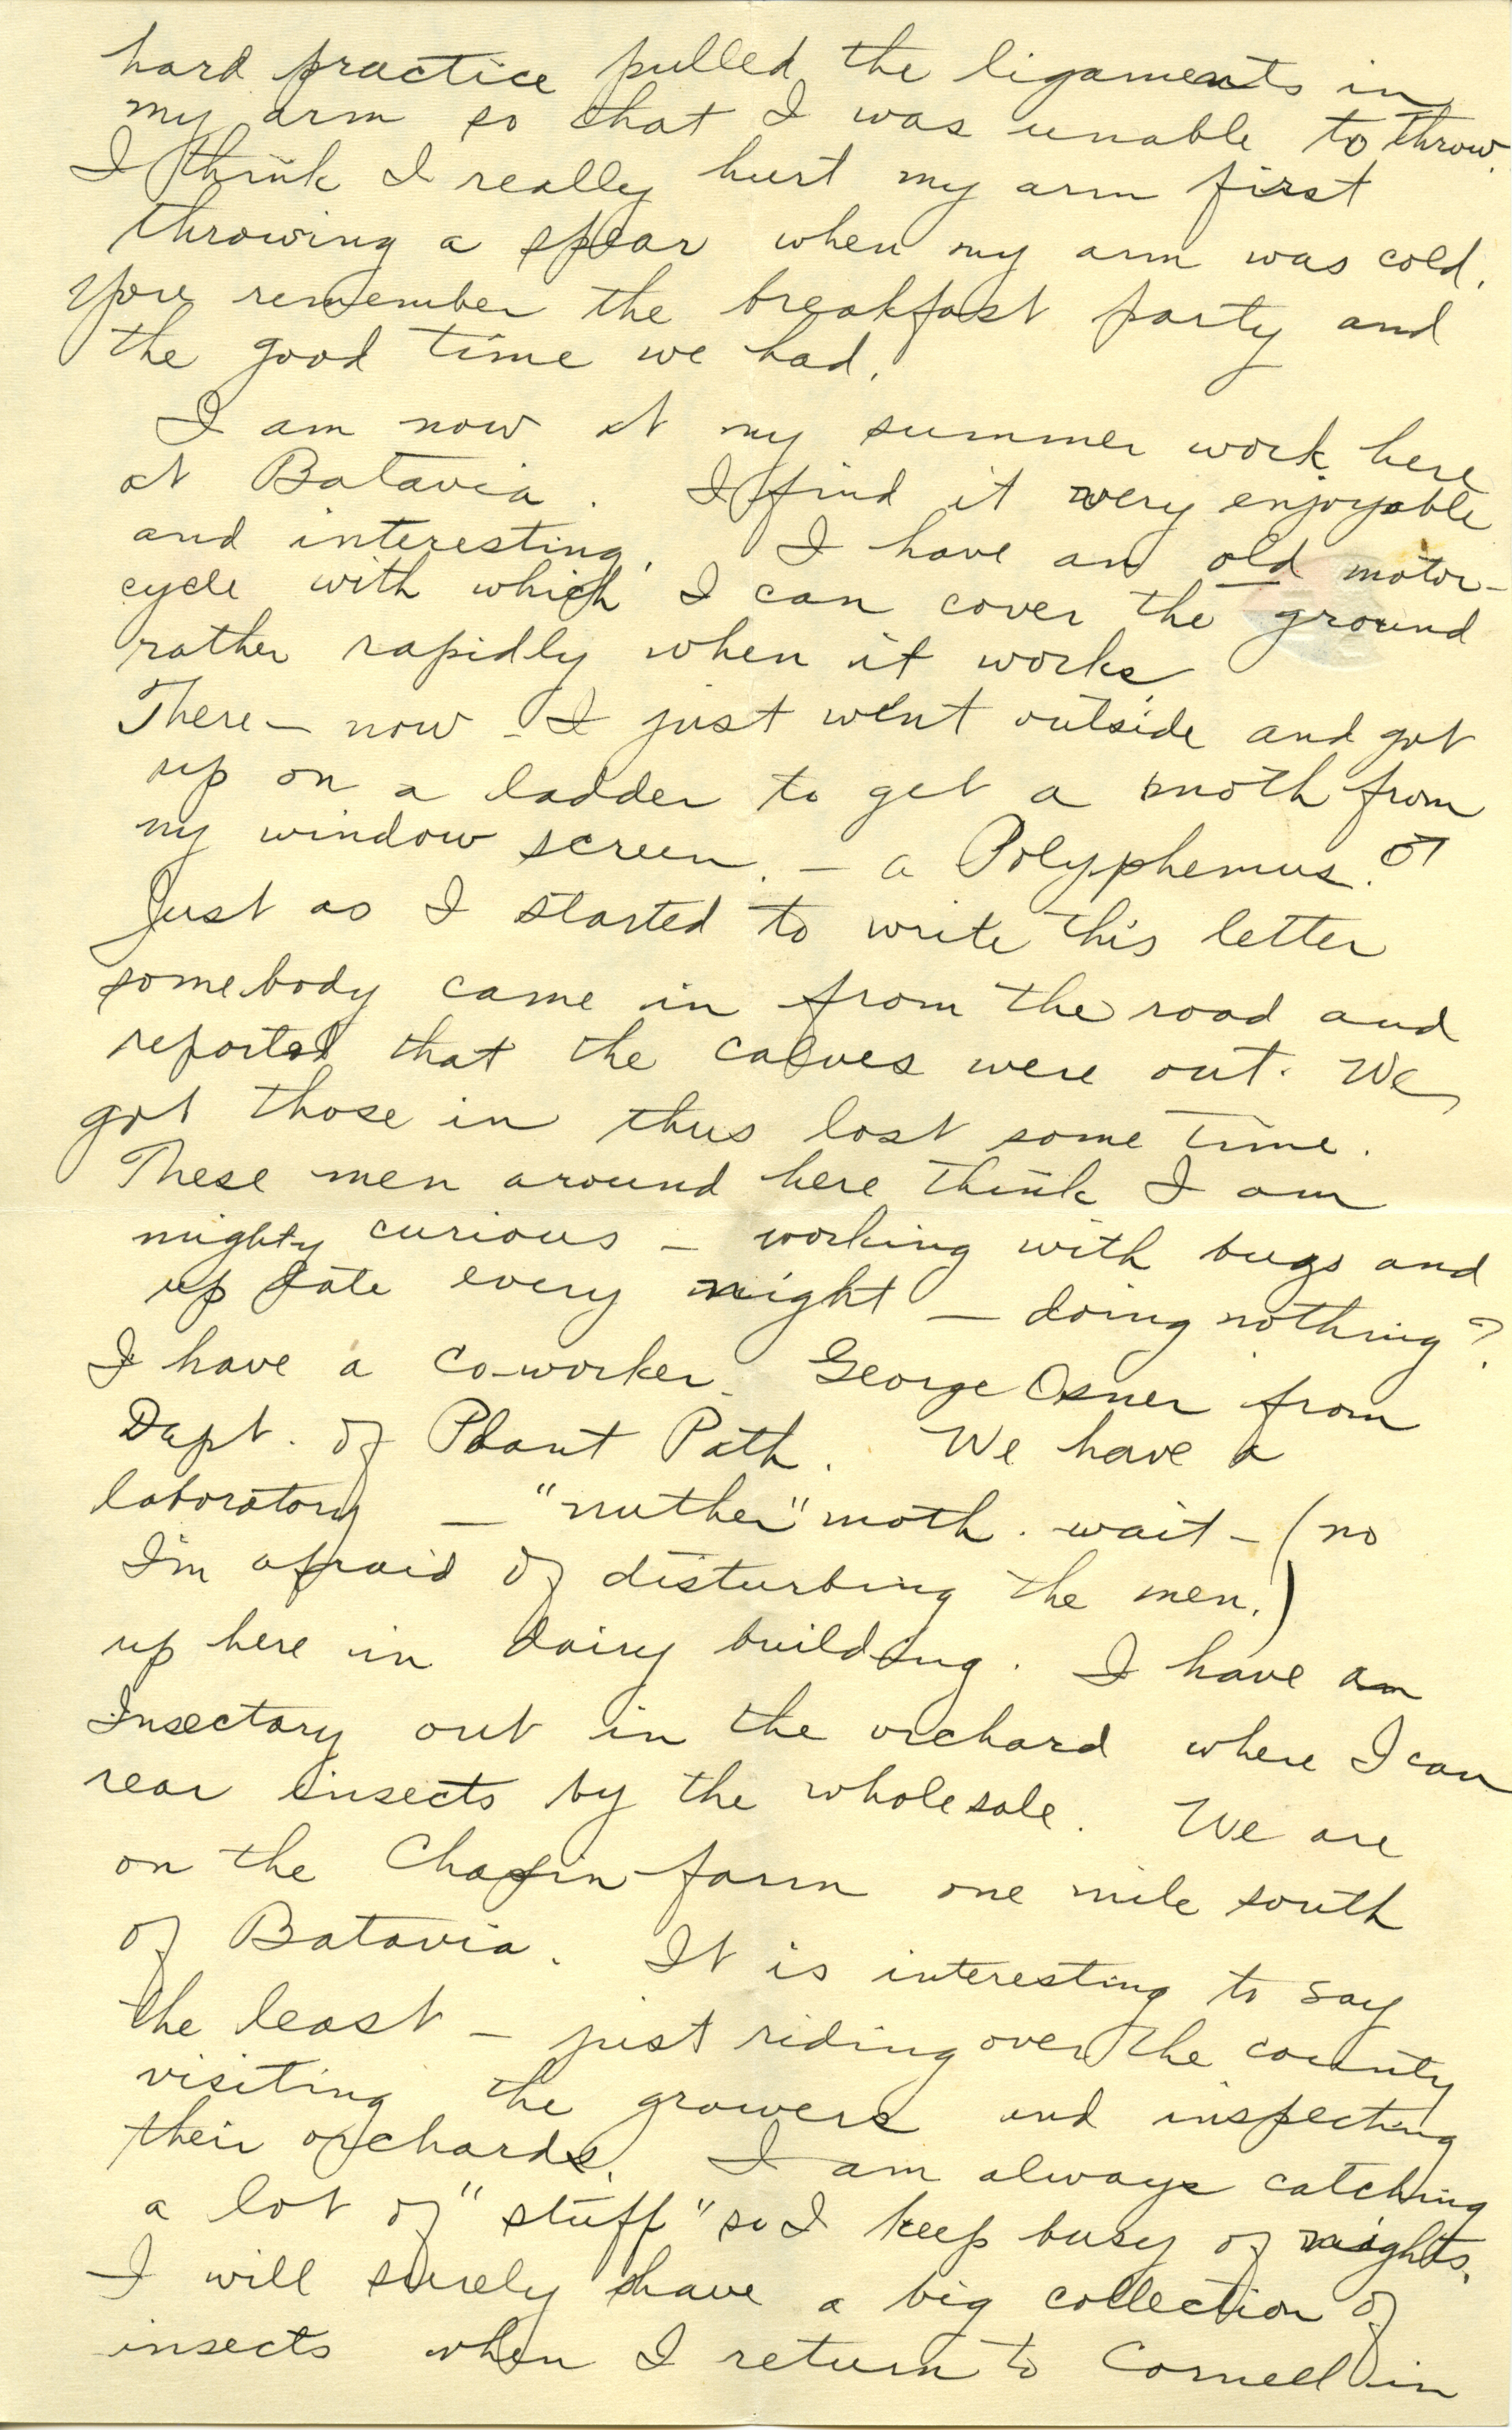 hard practice pulled the ligaments in
my arm so that I was unable to throw.
I think I really hurt my arm first
throwing a spear when my arm was cold.
You remember the breakfast party and
the good time we had.
I am now at my summer work here
at Batavia. I find it very enjoyable
and interesting. I have an old motor-
cycle with which I can cover the ground
rather rapidly when it works
There – now – I just went outside and got
up on a ladder to get a moth from
my window screen. – a Polyphemus. ♂
Just as I started to write this letter
somebody came in from the road and
reported that the calves were out. We
got those in thus lost some time.
These men around here think I am
mighty curious – working with bugs and
up late every night – doing nothing?
I have a co-worker – George Osner from
Dept. of Plant Path. We have a
laboratory – "nuther" moth. wait – (no
I'm afraid of disturbing the men.)
up here in dairy building. I have an
Insectary out in the orchard where I can
rear insects by the wholesale. We are
on the Chapin farm one mile south
of Batavia. It is interesting to say
the least – just riding over the county
visiting the growers and inspecting
their orchards. I am always catching
a lot of "stuff" so I keep busy of nights.
I will surely have a big collection of
insects when I return to Cornell in